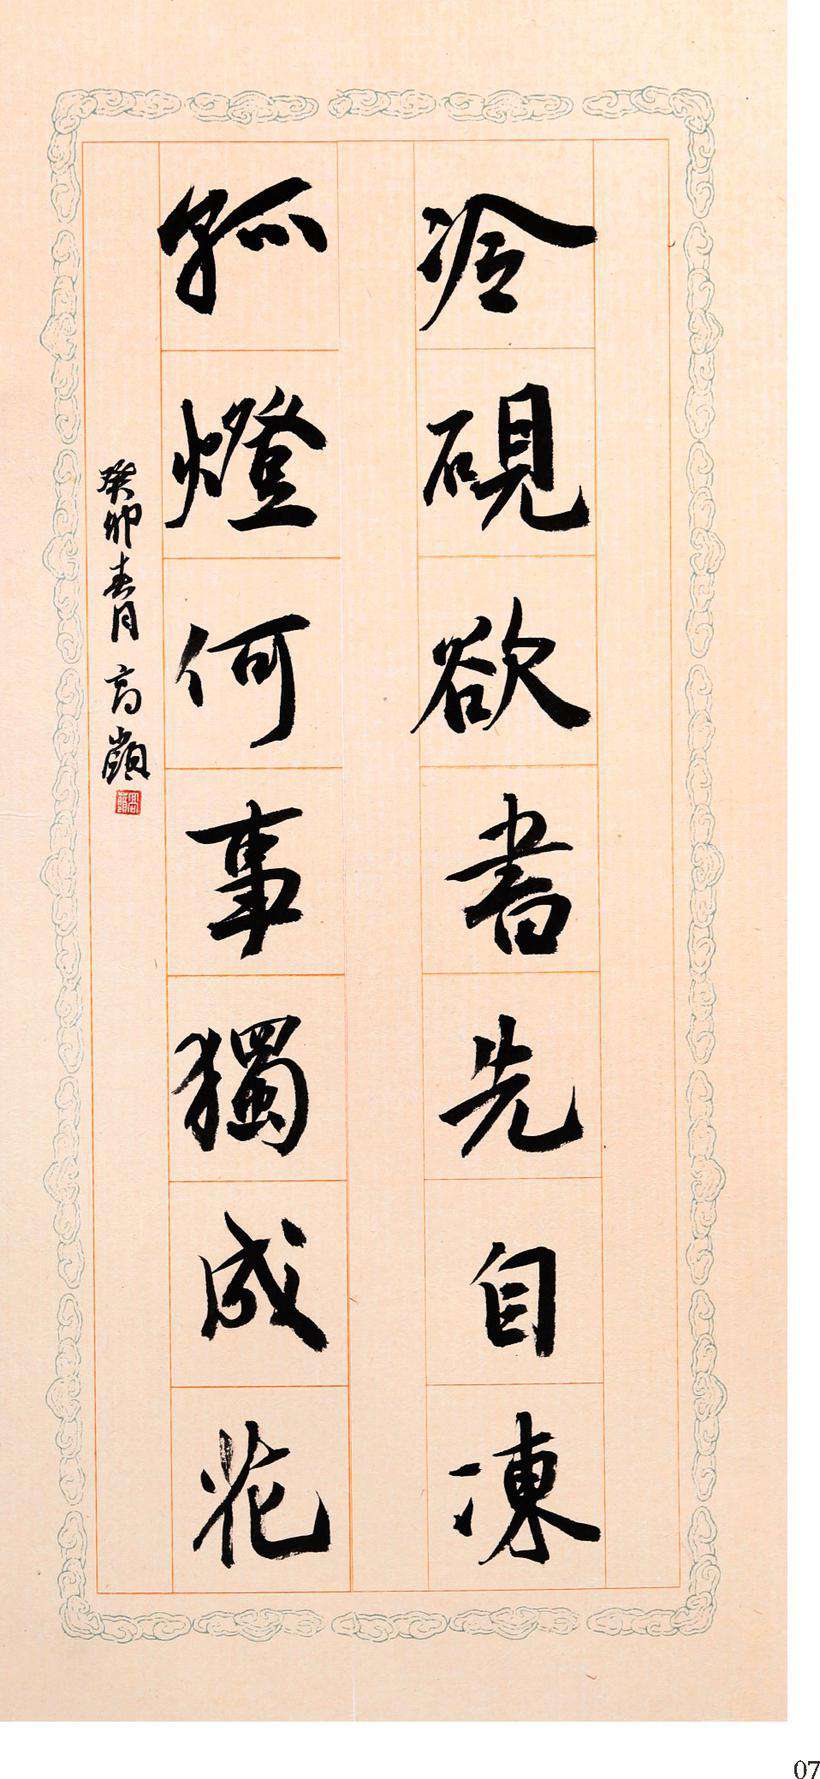 冷硯欲書先自凍
孤燈何事獨成花
癸卯春月高嶺
07